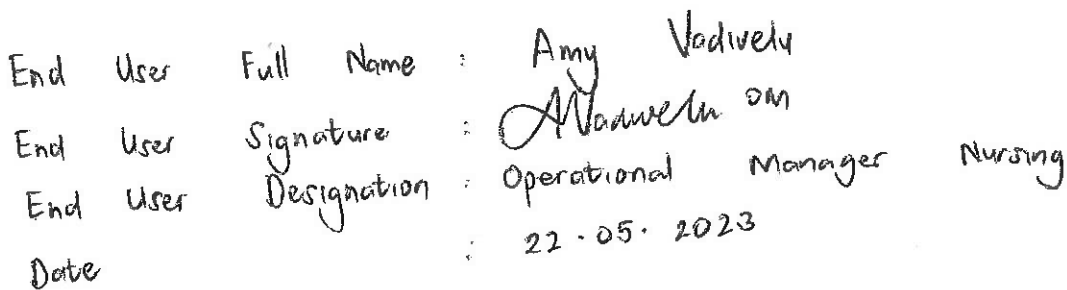 End User Full Name : Amy Vadivelu
End User Signature : AVadivelu OM
End User Designation : Operational Manager Nursing
Date : 22.05.2023